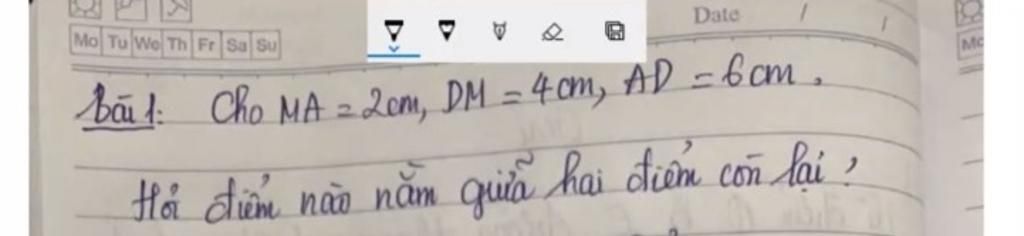 Date / /
Mo Tu We Th Fr Sa Su
Bài 1: Cho MA = 2cm, DM = 4cm, AD = 6cm.
Hỏi điểm nào nằm giữa hai điểm còn lại?